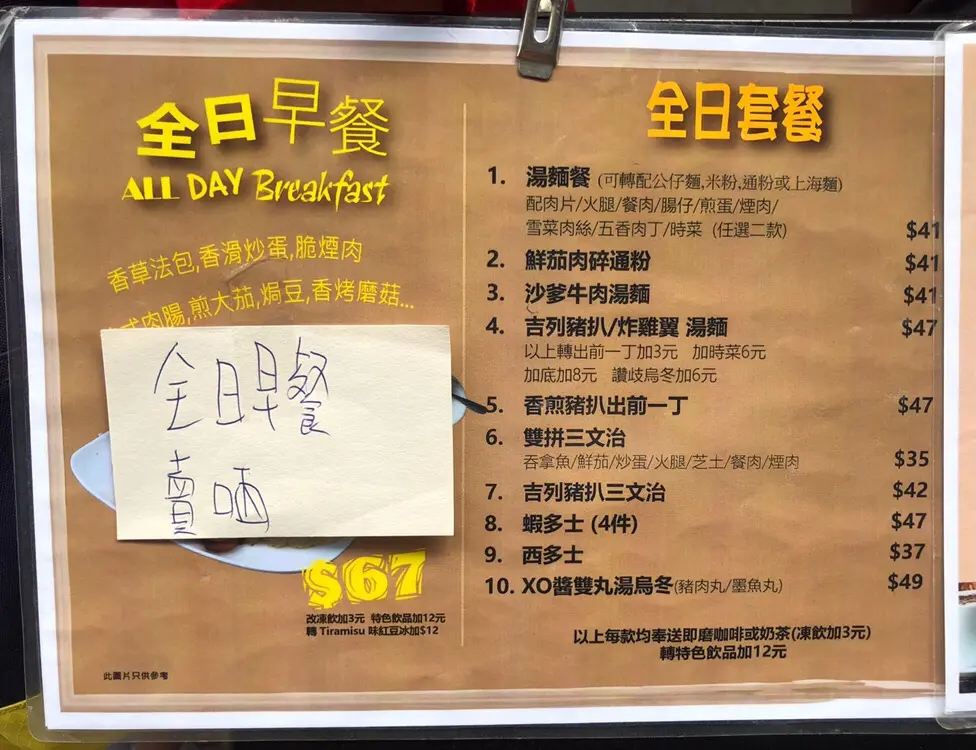 全日早餐
ALL DAY Breakfast
香草法包,香滑炒蛋,脆煙肉
式肉腸,煎大茄,焗豆,香烤磨菇...
全日早餐
賣哂
$67
改凍飲加3元 特色飲品加12元
轉 Tiramisu 味紅豆冰加$12
此圖片只供參考
全日套餐
1. 湯麵餐 (可轉配公仔麵,米粉,通粉或上海麵)
配肉片/火腿/餐肉/腸仔/煎蛋/煙肉/
雪菜肉絲/五香肉丁/時菜 (任選二款) $41
2. 鮮茄肉碎通粉 $41
3. 沙爹牛肉湯麵 $41
4. 吉列豬扒/炸雞翼 湯麵 $47
以上轉出前一丁加3元 加時菜6元
加底加8元 讚岐烏冬加6元
5. 香煎豬扒出前一丁 $47
6. 雙拼三文治
吞拿魚/鮮茄/炒蛋/火腿/芝士/餐肉/煙肉 $35
7. 吉列豬扒三文治 $42
8. 蝦多士 (4件) $47
9. 西多士 $37
10. XO醬雙丸湯烏冬(豬肉丸/墨魚丸) $49
以上每款均奉送即磨咖啡或奶茶(凍飲加3元)
轉特色飲品加12元